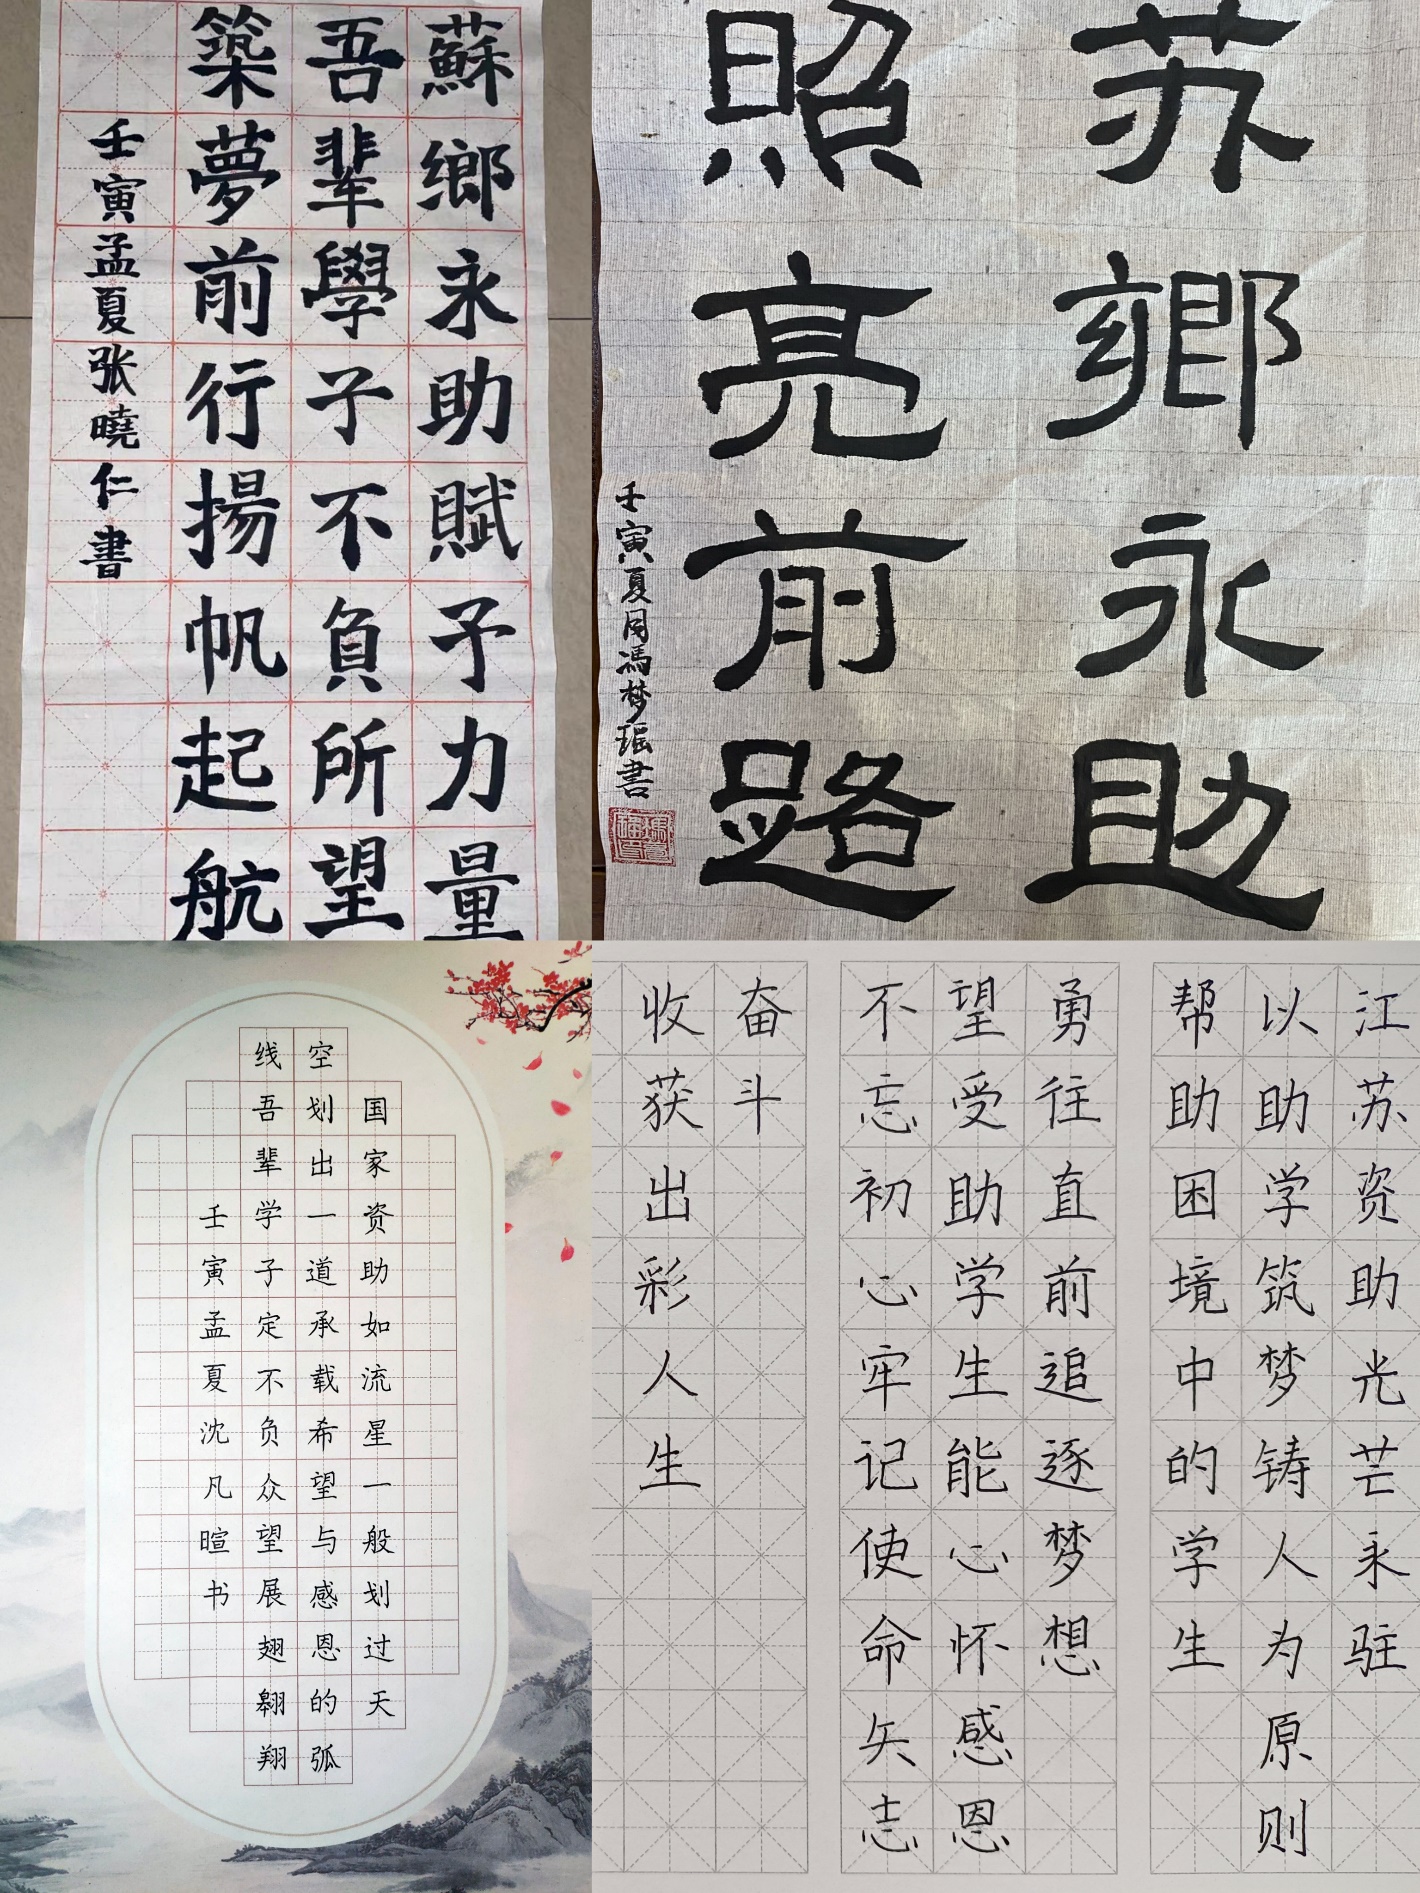 蘇鄉永助賦予力量
吾輩學子不負所望
築夢前行揚帆起航
壬寅孟夏张曉仁書
苏鄉永助
照亮前路
壬寅夏月馮梦瑶書
国家资助如流星一般划过天
空划出一道承载希望与感恩的弧
线吾辈学子定不负众望展翅翱翔
壬寅孟夏沈凡暄书
江苏资助光芒永驻
以助学筑梦铸人为原则
帮助困境中的学生
勇往直前追逐梦想
望受助学生能心怀感恩
不忘初心牢记使命矢志
奋斗
收获出彩人生